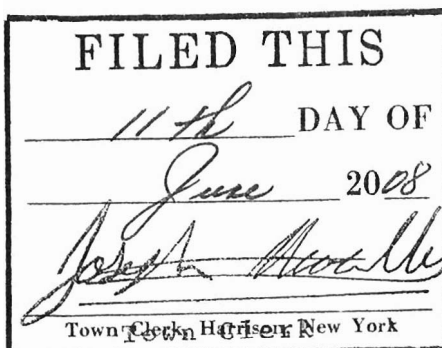 FILED THIS
11th DAY OF
June 2008
Joseph
Town Clerk, Harrison, New York
Town Clerk